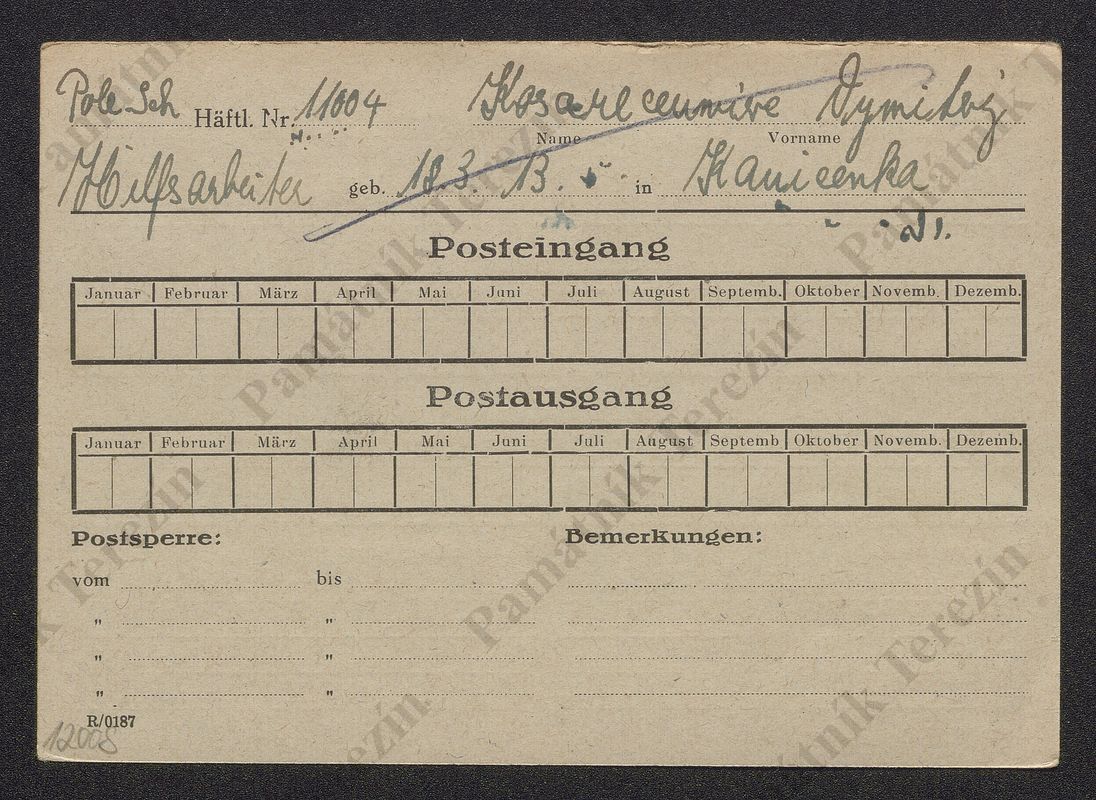 Pole-Sch Häftl. Nr. 11004 Dymitry
Name Vorname
Hilfsarbeiter geb. 18.3. 13. in Kanicenka
Posteingang
Januar Februar März April Mai Juni Juli August Septemb. Oktober Novemb. Dezemb.
Postausgang
Januar Februar März April Mai Juni Juli August Septemb Oktober Novemb. Dezemb.
Postsperre: Bemerkungen:
vom bis
" "
" "
" "
R/0187
12008
Památník Terezín